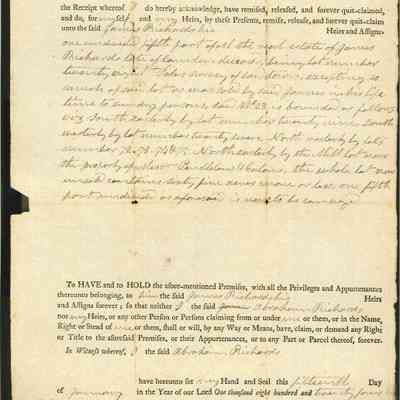 the Receipt whereof I do hereby acknowledge, have remised, released, and forever quit-claimed,
and do, for myself and my Heirs, by these Presents, remise, release, and forever quit-claim
unto the said James Richards his Heirs and Assigns
one undivided fifth part of all the real estate of James
Richards late of Camden deceased, being lot number
twenty eight
much of said lot as was sold by said James in his life
time to sundry persons, said No 28, is bounded as follows
viz South easterly by lot number twenty nine South
westerly by lot number twenty seven North westerly by lots
number 72. 73. 74 & 75. North easterly by the Mill lot now
the property of
contains sixty five acres more or less, one fifth
part undivided as aforesaid is
To HAVE and to HOLD the afore-mentioned Premises, with all the Privileges and Appurtenances
thereunto belonging, to him the said James Richards his Heirs
and Assigns forever; so that neither I the said Abraham Richards
nor my Heirs, or any other Person or Persons claiming from or under me or them, or in the Name,
Right or Stead of me or them, shall or will, by any Way or Means, have, claim, or demand any Right
or Title to the aforesaid Premises, or their Appurtenances, or to any Part or Parcel thereof, forever.
In Witness whereof, I the said Abraham Richards
have hereunto set my Hand and Seal this fifteenth Day
of January in the Year of our Lord One thousand eight hundred and twenty